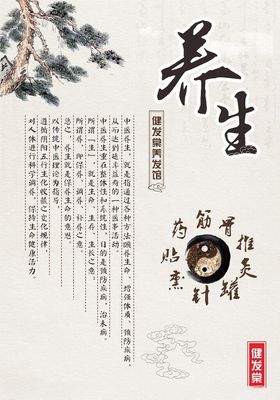 养生
健发棠养发馆
中医养生，就是指通过多种方法颐养生命，增强体质，预防疾病，
从而达到延年益寿的一种医事活动。
中医养生重在整体性和系统性，目的是预防疾病，治未病。
所谓“生”，就是生命、生存、生长之意；
所谓养，即保养、调养、补养之意。
总之，养生就是保养生命的意思。
以传统中医理论为指导，
遵循阴阳五行生化收藏之变化规律，
对人体进行科学调养，保持生命健康活力。
药 筋 骨 推
贴 熏 针 罐 灸
健发棠